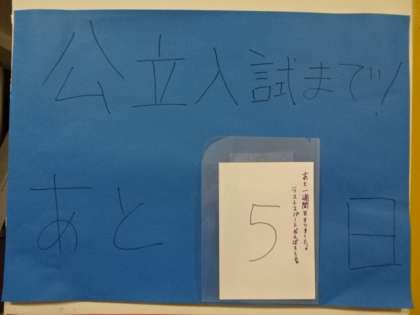 公立入試まで!
あと 5 日
あと一週間をきりました。
ラストスパートがんばろうね